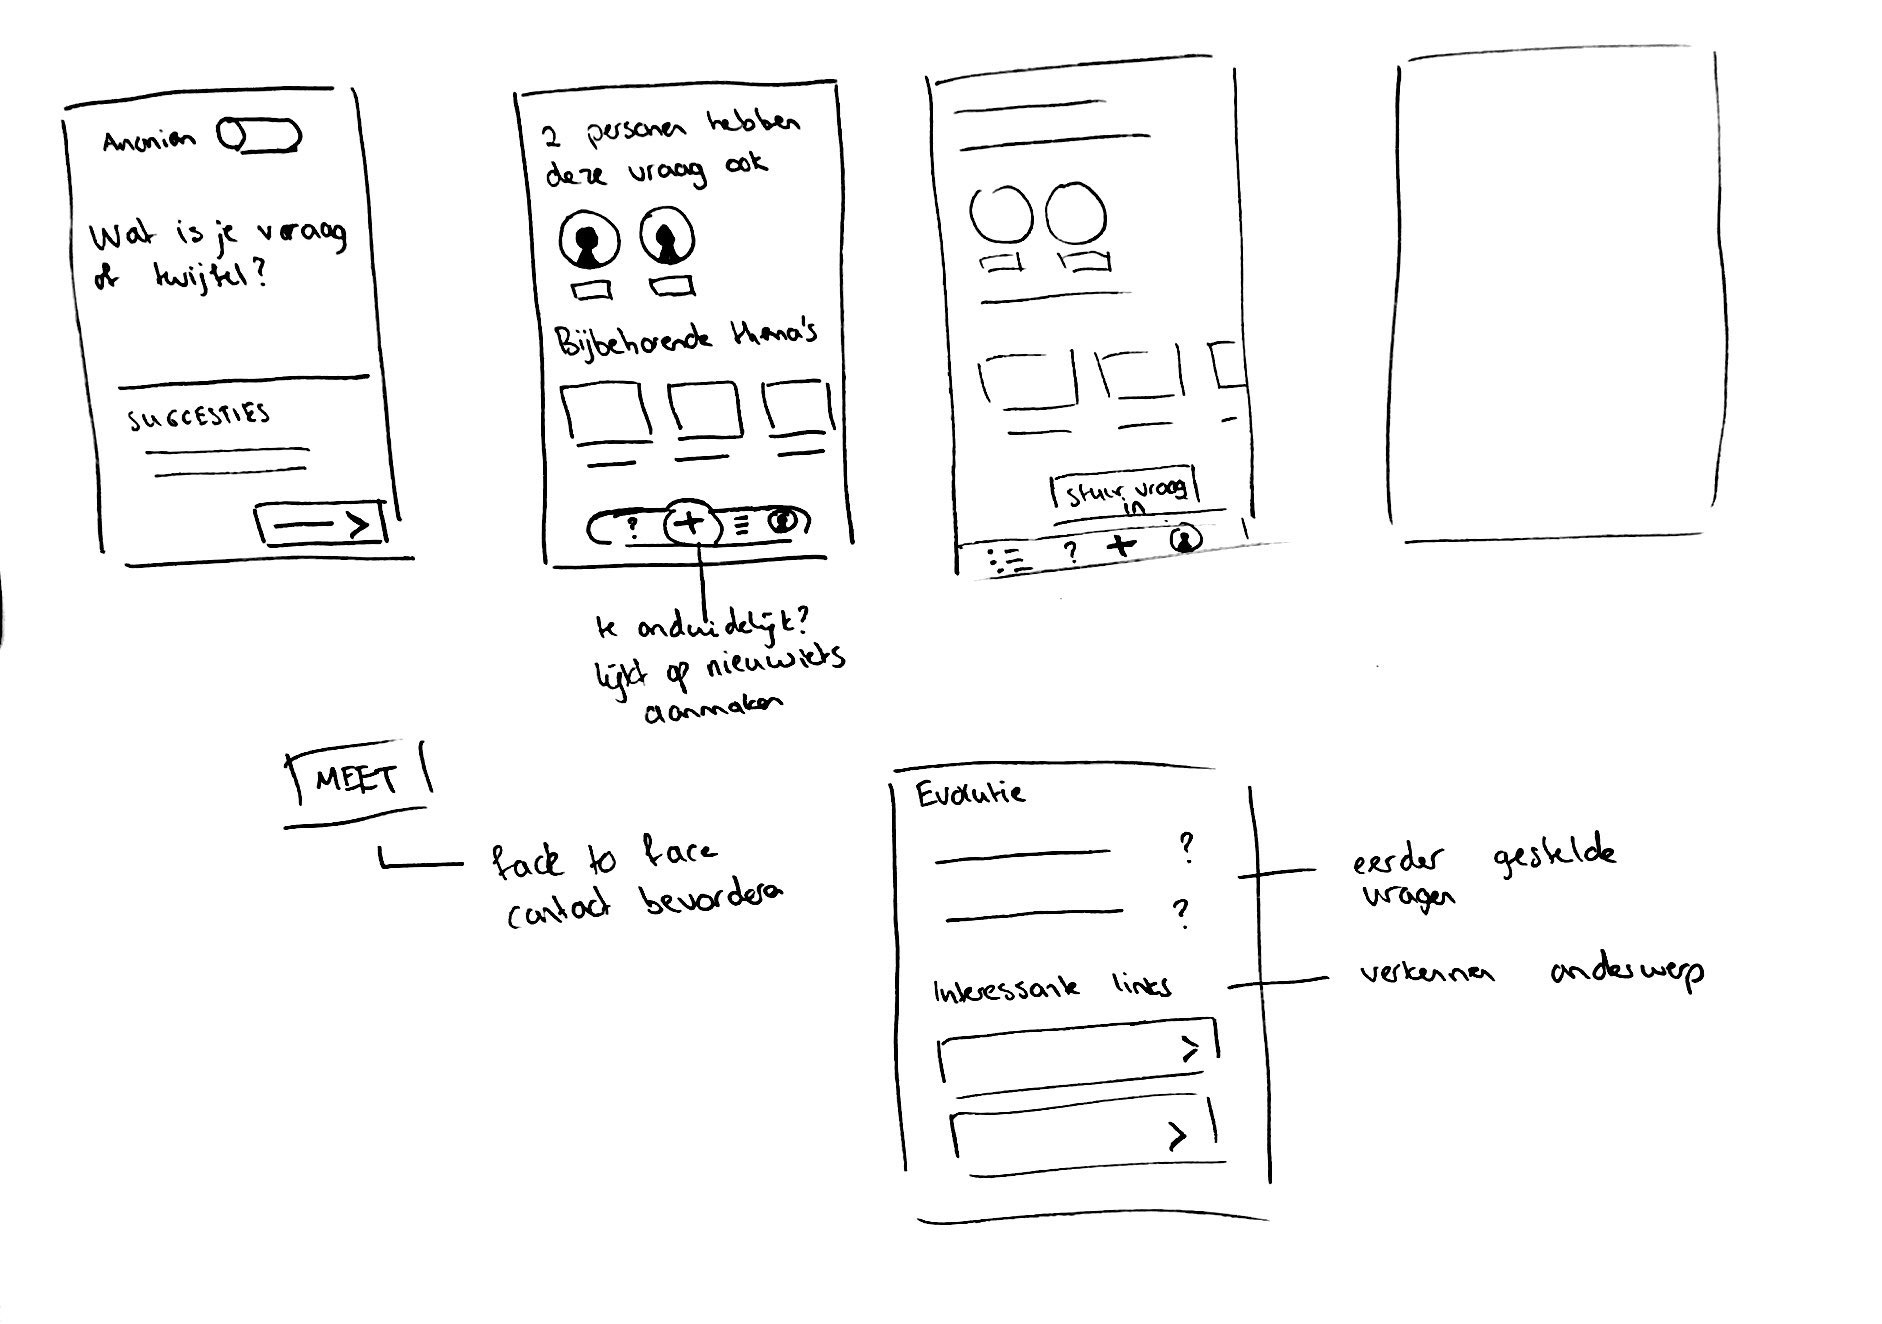 Anoniem
Wat is je vraag
of twijfel?
SUGGESTIES
2 personen hebben
deze vraag ook
Bijbehorende thema's
?
+
te onduidelijk?
lijkt op nieuw iets
aanmaken
stuur vraag
in
?
+
MEET
face to face
contact bevorderen
Evolutie
?
?
Interessante links
>
>
eerder gestelde
vragen
verkennen onderwerp